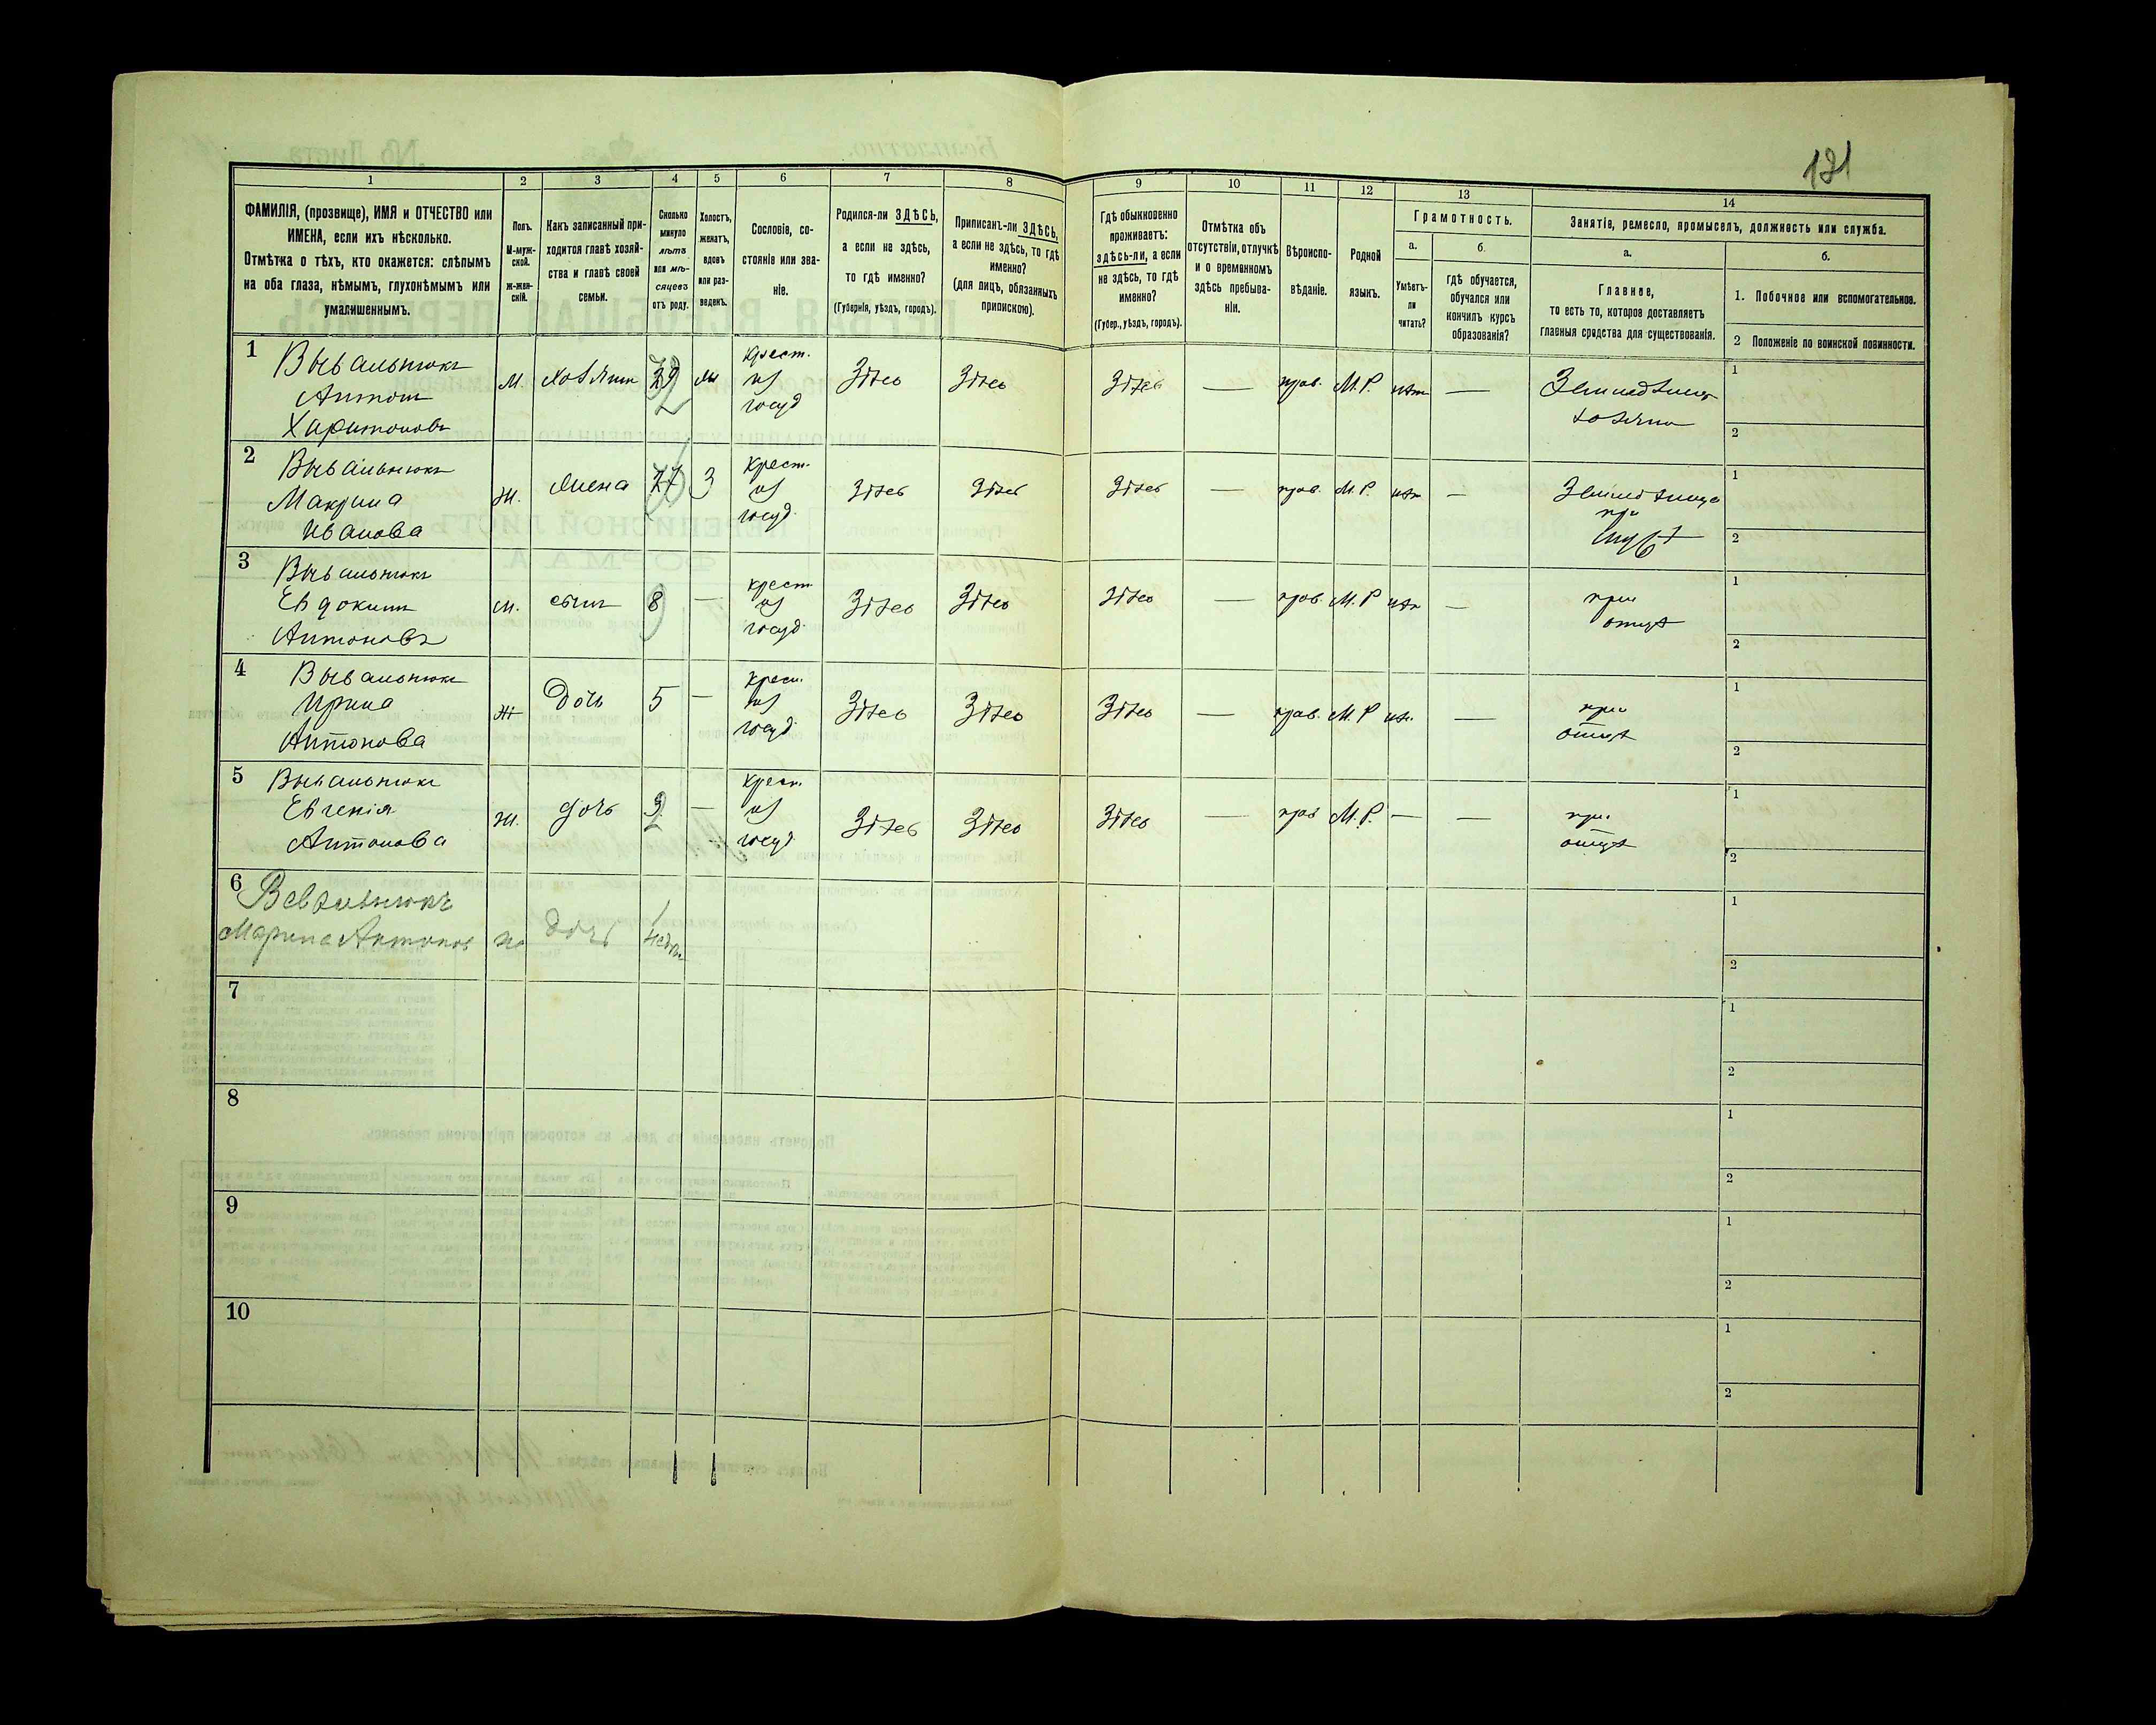 121
1 2 3 4 5 6 7 8 9 10 11 12 13 14
ФАМИЛІЯ, (прозвище), ИМЯ и ОТЧЕСТВО или
ИМЕНА, если ихъ нѣсколько.
Отмѣтка о тѣхъ, кто окажется: слѣпымъ
на оба глаза, нѣмымъ, глухонѣмымъ или
умалишеннымъ.
Полъ.
М-муж-
ской.
Ж-жен-
скій.
Какъ записанный при-
ходится главѣ хозяй-
ства и главѣ своей
семьи.
Сколько
минуло
лѣтъ
или мѣ-
сяцевъ
отъ роду.
Холостъ,
женатъ,
вдовъ
или раз-
веденъ.
Сословіе, со-
стояніе или зва-
ніе.
Родился-ли ЗДѢСЬ,
а если не здѣсь,
то гдѣ именно?
(Губернія, уѣздъ, городъ).
Приписанъ-ли ЗДѢСЬ,
а если не здѣсь, то гдѣ
именно?
(для лицъ, обязанныхъ
припискою).
Гдѣ обыкновенно
проживаетъ:
здѣсь-ли, а если
не здѣсь, то гдѣ
именно?
(Губер., уѣздъ, городъ).
Отмѣтка объ
отсутствіи, отлучкѣ
и о временномъ
здѣсь пребыва-
ніи.
Вѣроиспо-
вѣданіе.
Родной
языкъ.
Грамотность.
а.
Умѣетъ-
ли
читать?
б.
гдѣ обучается,
обучался или
кончилъ курсъ
образованія?
Занятіе, ремесло, промыселъ, должность или служба.
а.
Главное,
то есть то, которое доставляетъ
главныя средства для существованія.
б.
1. Побочное или вспомогательное.
2 Положеніе по воинской повинности.
1
Антон
Харитоновъ
м. хозяин
крест.
из
госуд
Здѣсь Здѣсь Здѣсь — прав. М.Р. нѣт —
хозяин
1
2
2
Макрина
Иванова
ж. жена З
крест.
из
госуд.
здѣсь здѣсь здѣсь — прав. М.Р. нѣт —
при
1
2
3
Евдоким
Антоновъ
м. сын 8 —
крест
из
госуд.
Здѣсь Здѣсь здѣсь — прав. М.Р нѣт —
при
отцѣ
1
2
4
Ирина
Антонова
ж дочь 5 —
крест.
из
госуд.
Здѣсь Здѣсь Здѣсь — прав. М.Р нѣт. —
при
отцѣ
1
2
5
Евгенія
Антонова
ж. дочь —
крест.
из
госуд.
Здѣсь Здѣсь Здѣсь — прав М.Р. — —
при
отцѣ
1
2
6
Марина Антонов
дочь
1
2
7
1
2
8
1
2
9
1
2
10
1
2